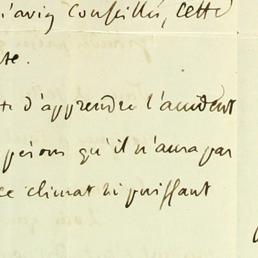 m'avez conseillé, cette
te.
d'apprendre l'accident
espérons qu'il n'aura pas
ce climat si puissant